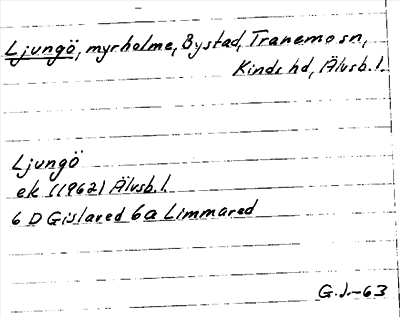 Ljungö, myrholme, Bystad, Tranemo sn,
Kinds hd, Älvsb. l.
Ljungö
ek (1962) Älvsb. l.
6 D Gislaved 6a Limmared
G.J.-63